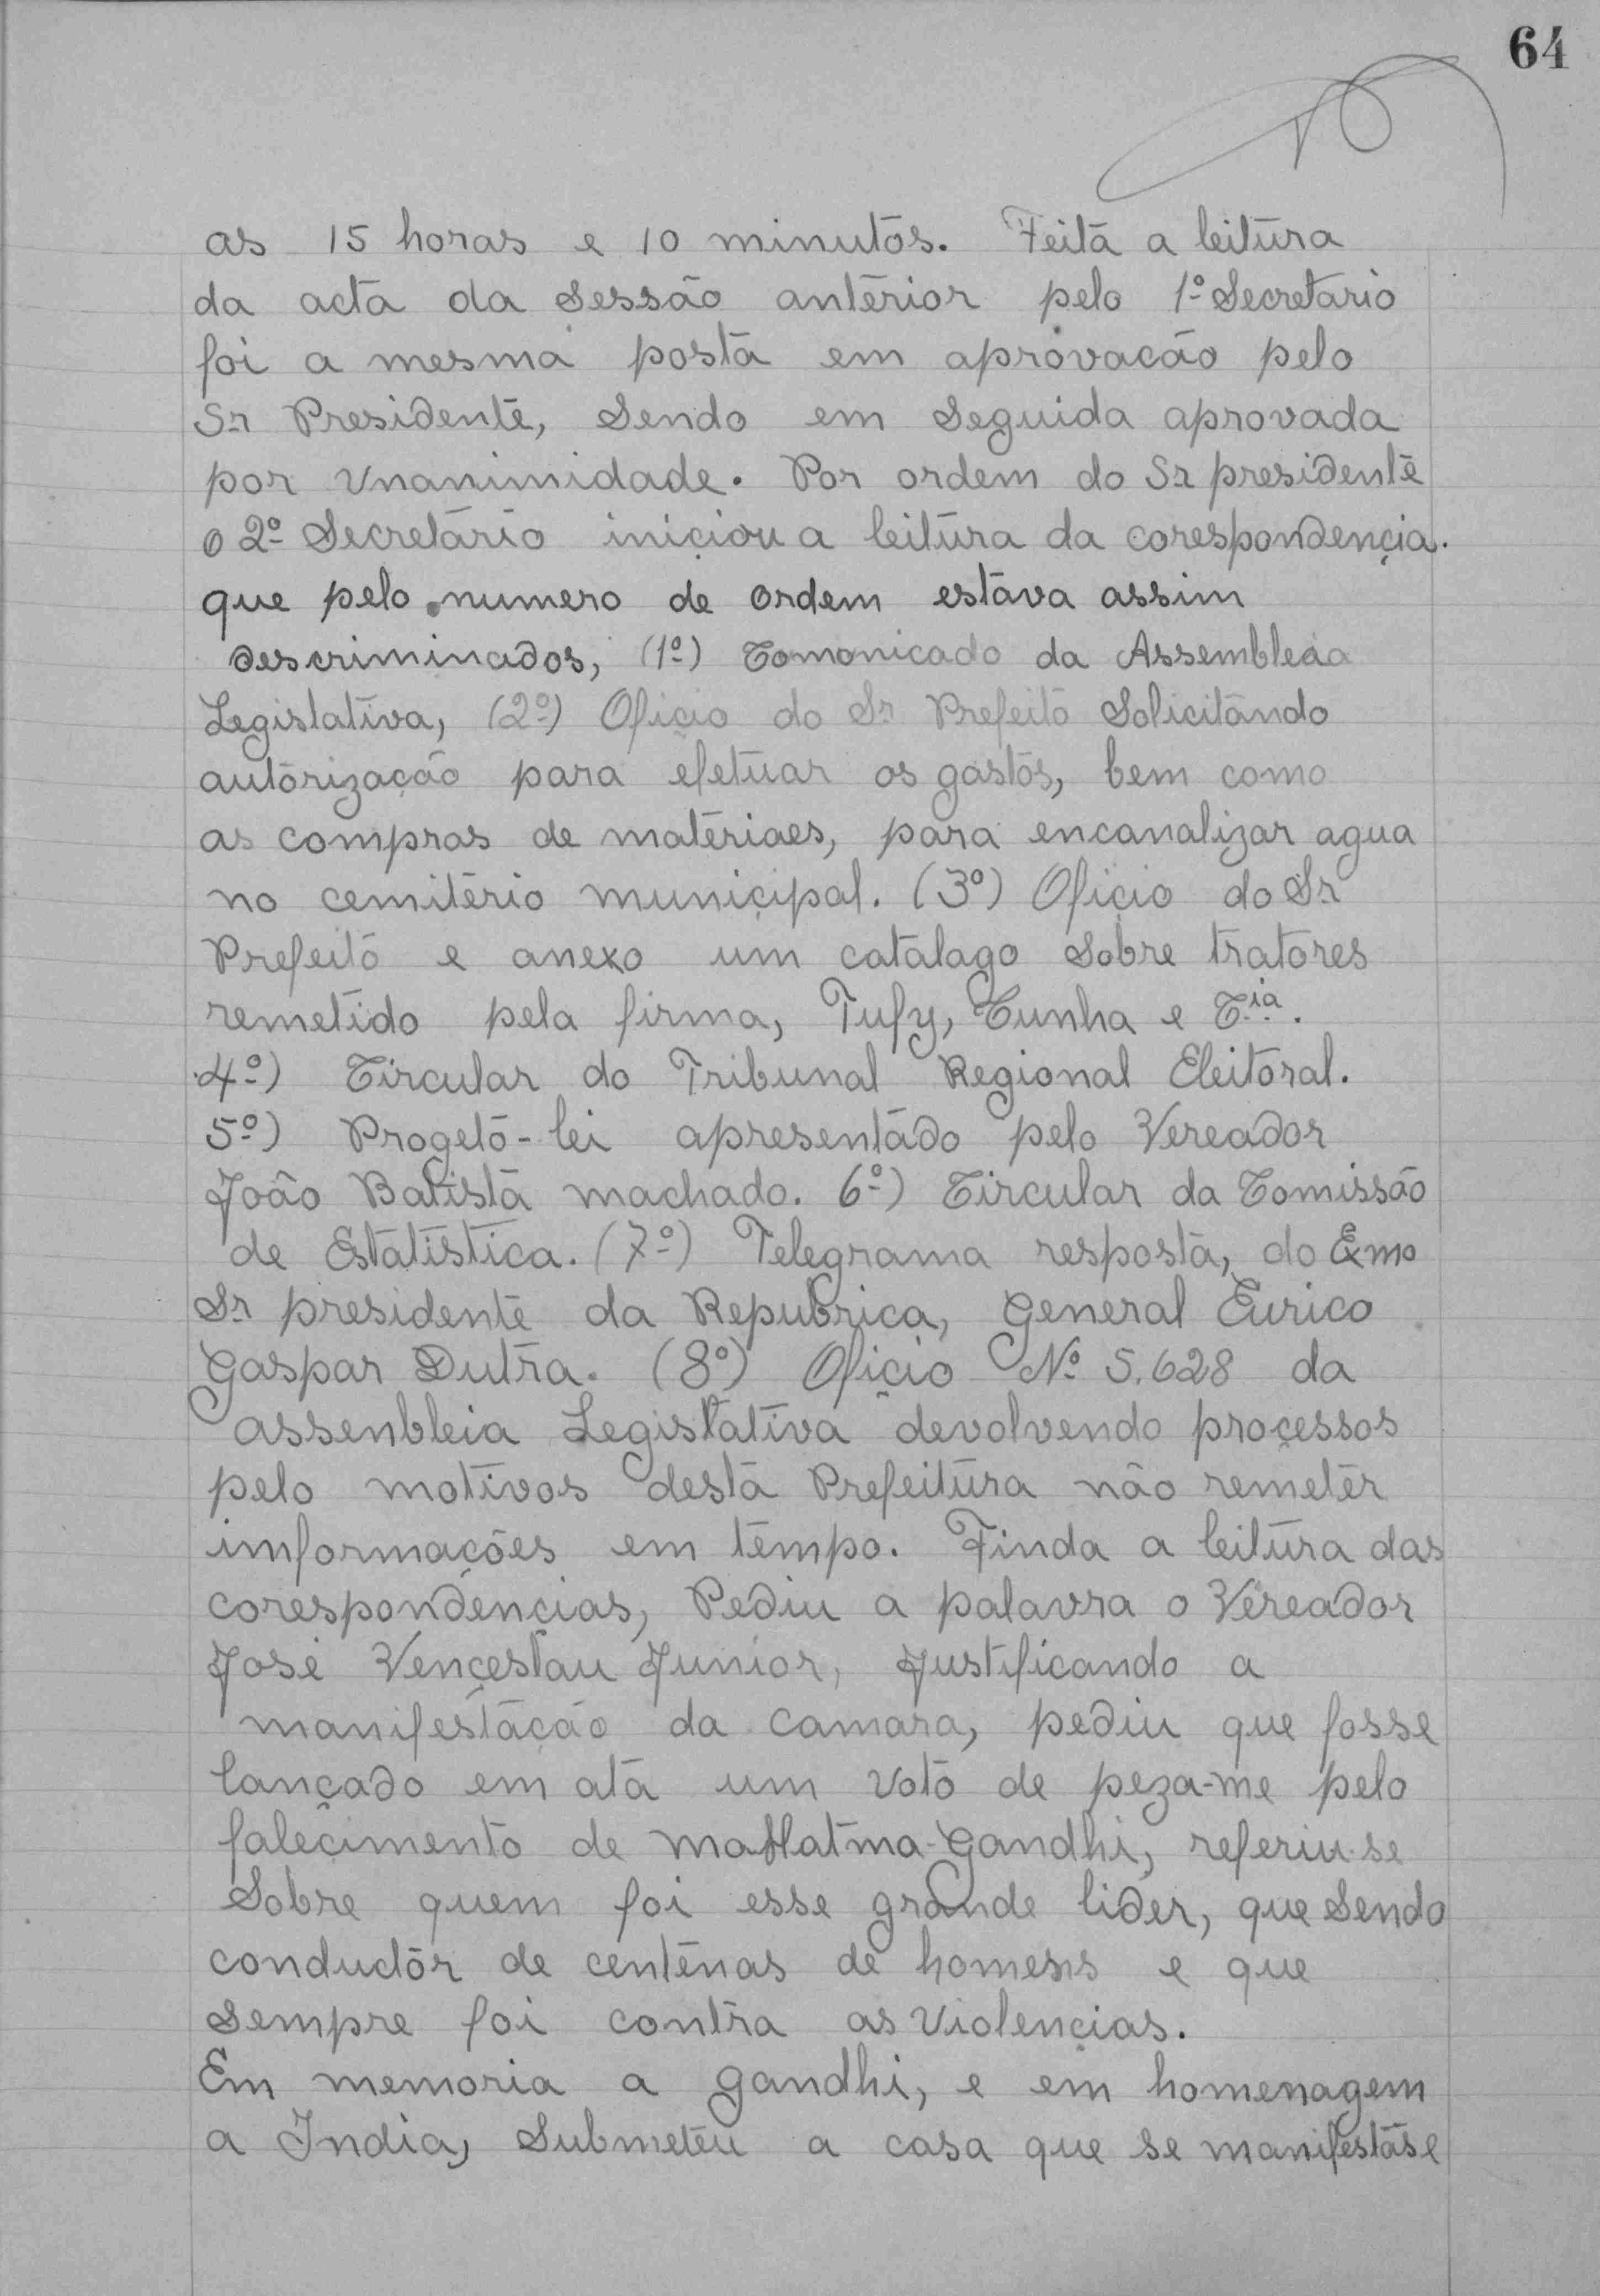 64
as 15 horas e 10 minutos. Feita a leitura
da acta da Sessão anterior pelo 1º Secretario
foi a mesma posta em aprovacão pelo
Sr Presidente, Sendo em Seguida aprovada
por Unanimidade. Por ordem do Sr presidente
o 2º Secretário iniçiou a leitura da corespondençia.
que pelo numero de ordem estava assim
descriminados, (1º) Comonicado da Assembleaa
Legistativa, (2º) Ofiçio do Sr Prefeito Solicitando
autorização para efetuar os gastos, bem como
as compras de materiaes, para encanalizar agua
no cemitério muniçipal. (3º) Ofiçio do Sr
Prefeito e anexo um catalago Sobre tratores
remetido pela firma, Tufy, Cunha e Cia.
4º) Circular do Tribunal Regional Eleitoral.
5º) Progeto-lei apresentado pelo Vereador
João Batista machado. 6º) Circular da Comissão
de Estatistica. (7º) Telegrama resposta, do Exmo
Sr presidente da Repubrica, General Eurico
Gaspar Dutra. (8º) Ofiçio Nº 5.628 da
assenbleia Legistativa devolvendo proçessos
pelo motivos desta Prefeitura não remeter
imformações em tempo. Finda a leitura das
corespondençias, Pediu a palavra o Vereador
José Vençeslau Junior, Justificando a
manifestação da camara, pediu que fosse
lançado em ata um voto de peza-me pelo
faleçimento de maHatma-Gandhi, referiu-se
Sobre quem foi esse grande lider, que Sendo
conductor de centenas de homens e que
Sempre foi contra as Violençias.
Em memoria a gandhi, e em homenagem
a India, Submeteu a casa que se manifestáse